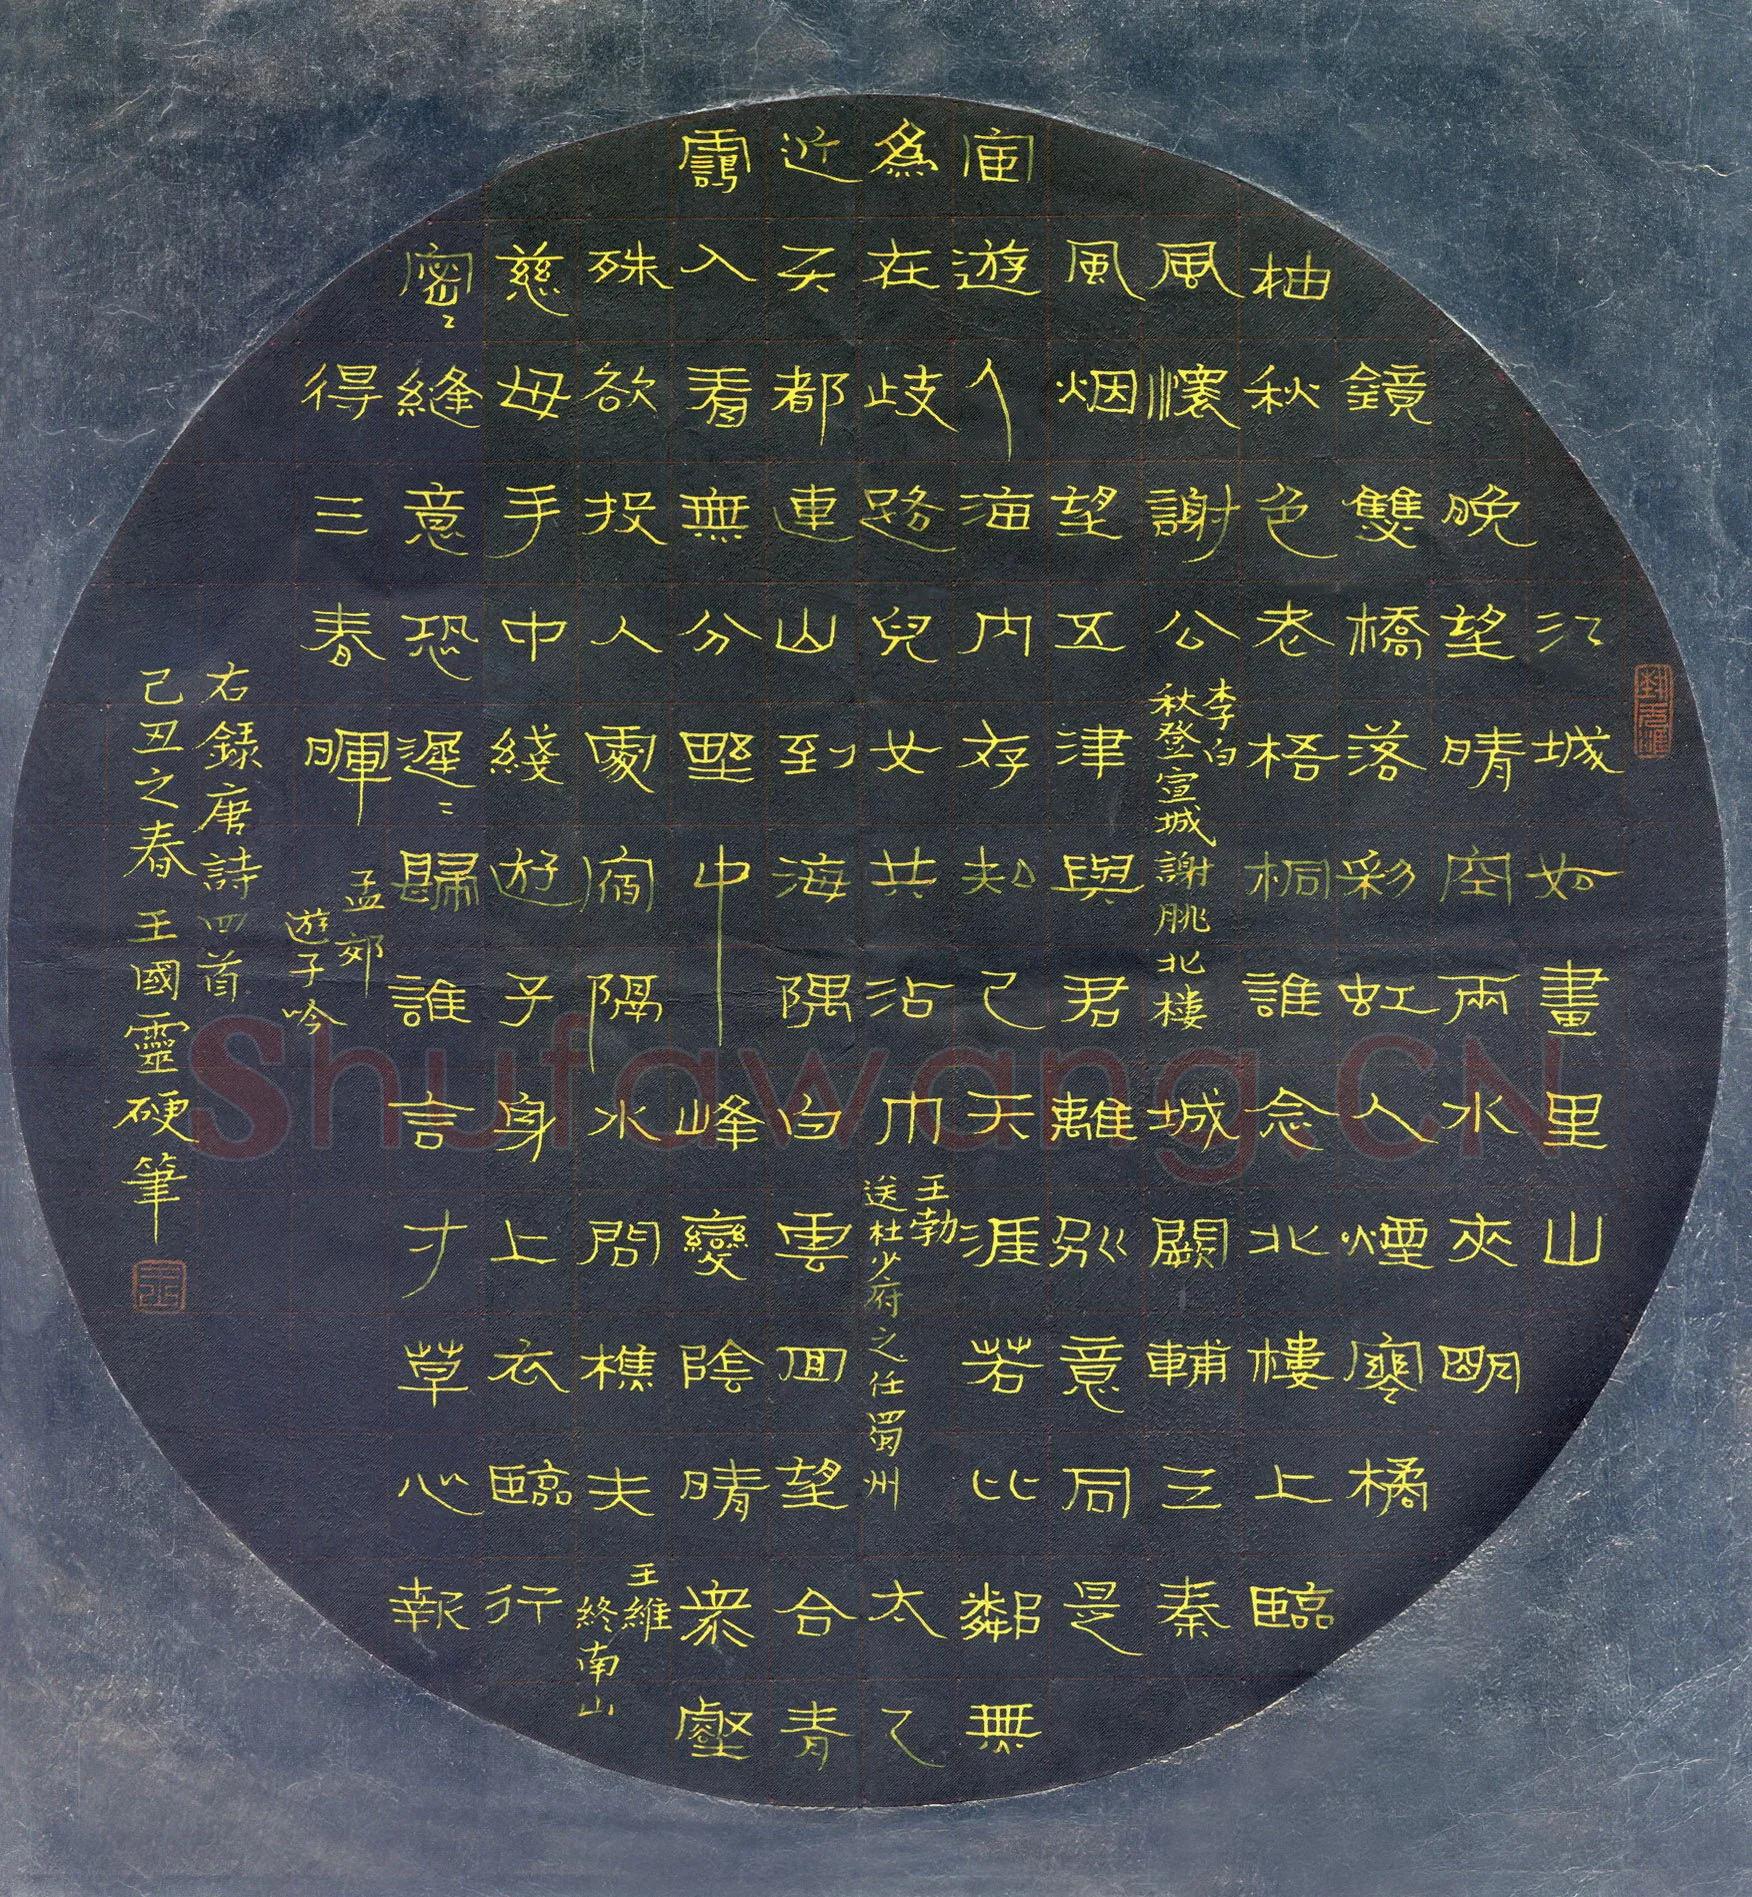 江城如畫里山
晚望晴空兩水夾明
鏡雙橋落彩虹人煙寒橘
柚秋色老梧桐誰念北樓上臨
風懷謝公
李白
秋登宣城謝朓北樓
城闕輔三秦
風烟望五津與君離別意同是
宦遊人海内存知己天涯若比鄰無
為在歧路兒女共沾巾
王勃
送杜少府之任蜀州
太乙
近天都連山到海隅白雲回望合青
靄入看無分野中峰變陰晴衆壑
殊欲投人處宿隔水問樵夫
王維
終南山
慈母手中綫遊子身上衣臨行
密〻縫意恐遲〻歸誰言寸草心報
得三春暉
孟郊
遊子吟
右錄唐詩四首
己丑之春王國靈硬筆
Shufawang.CN